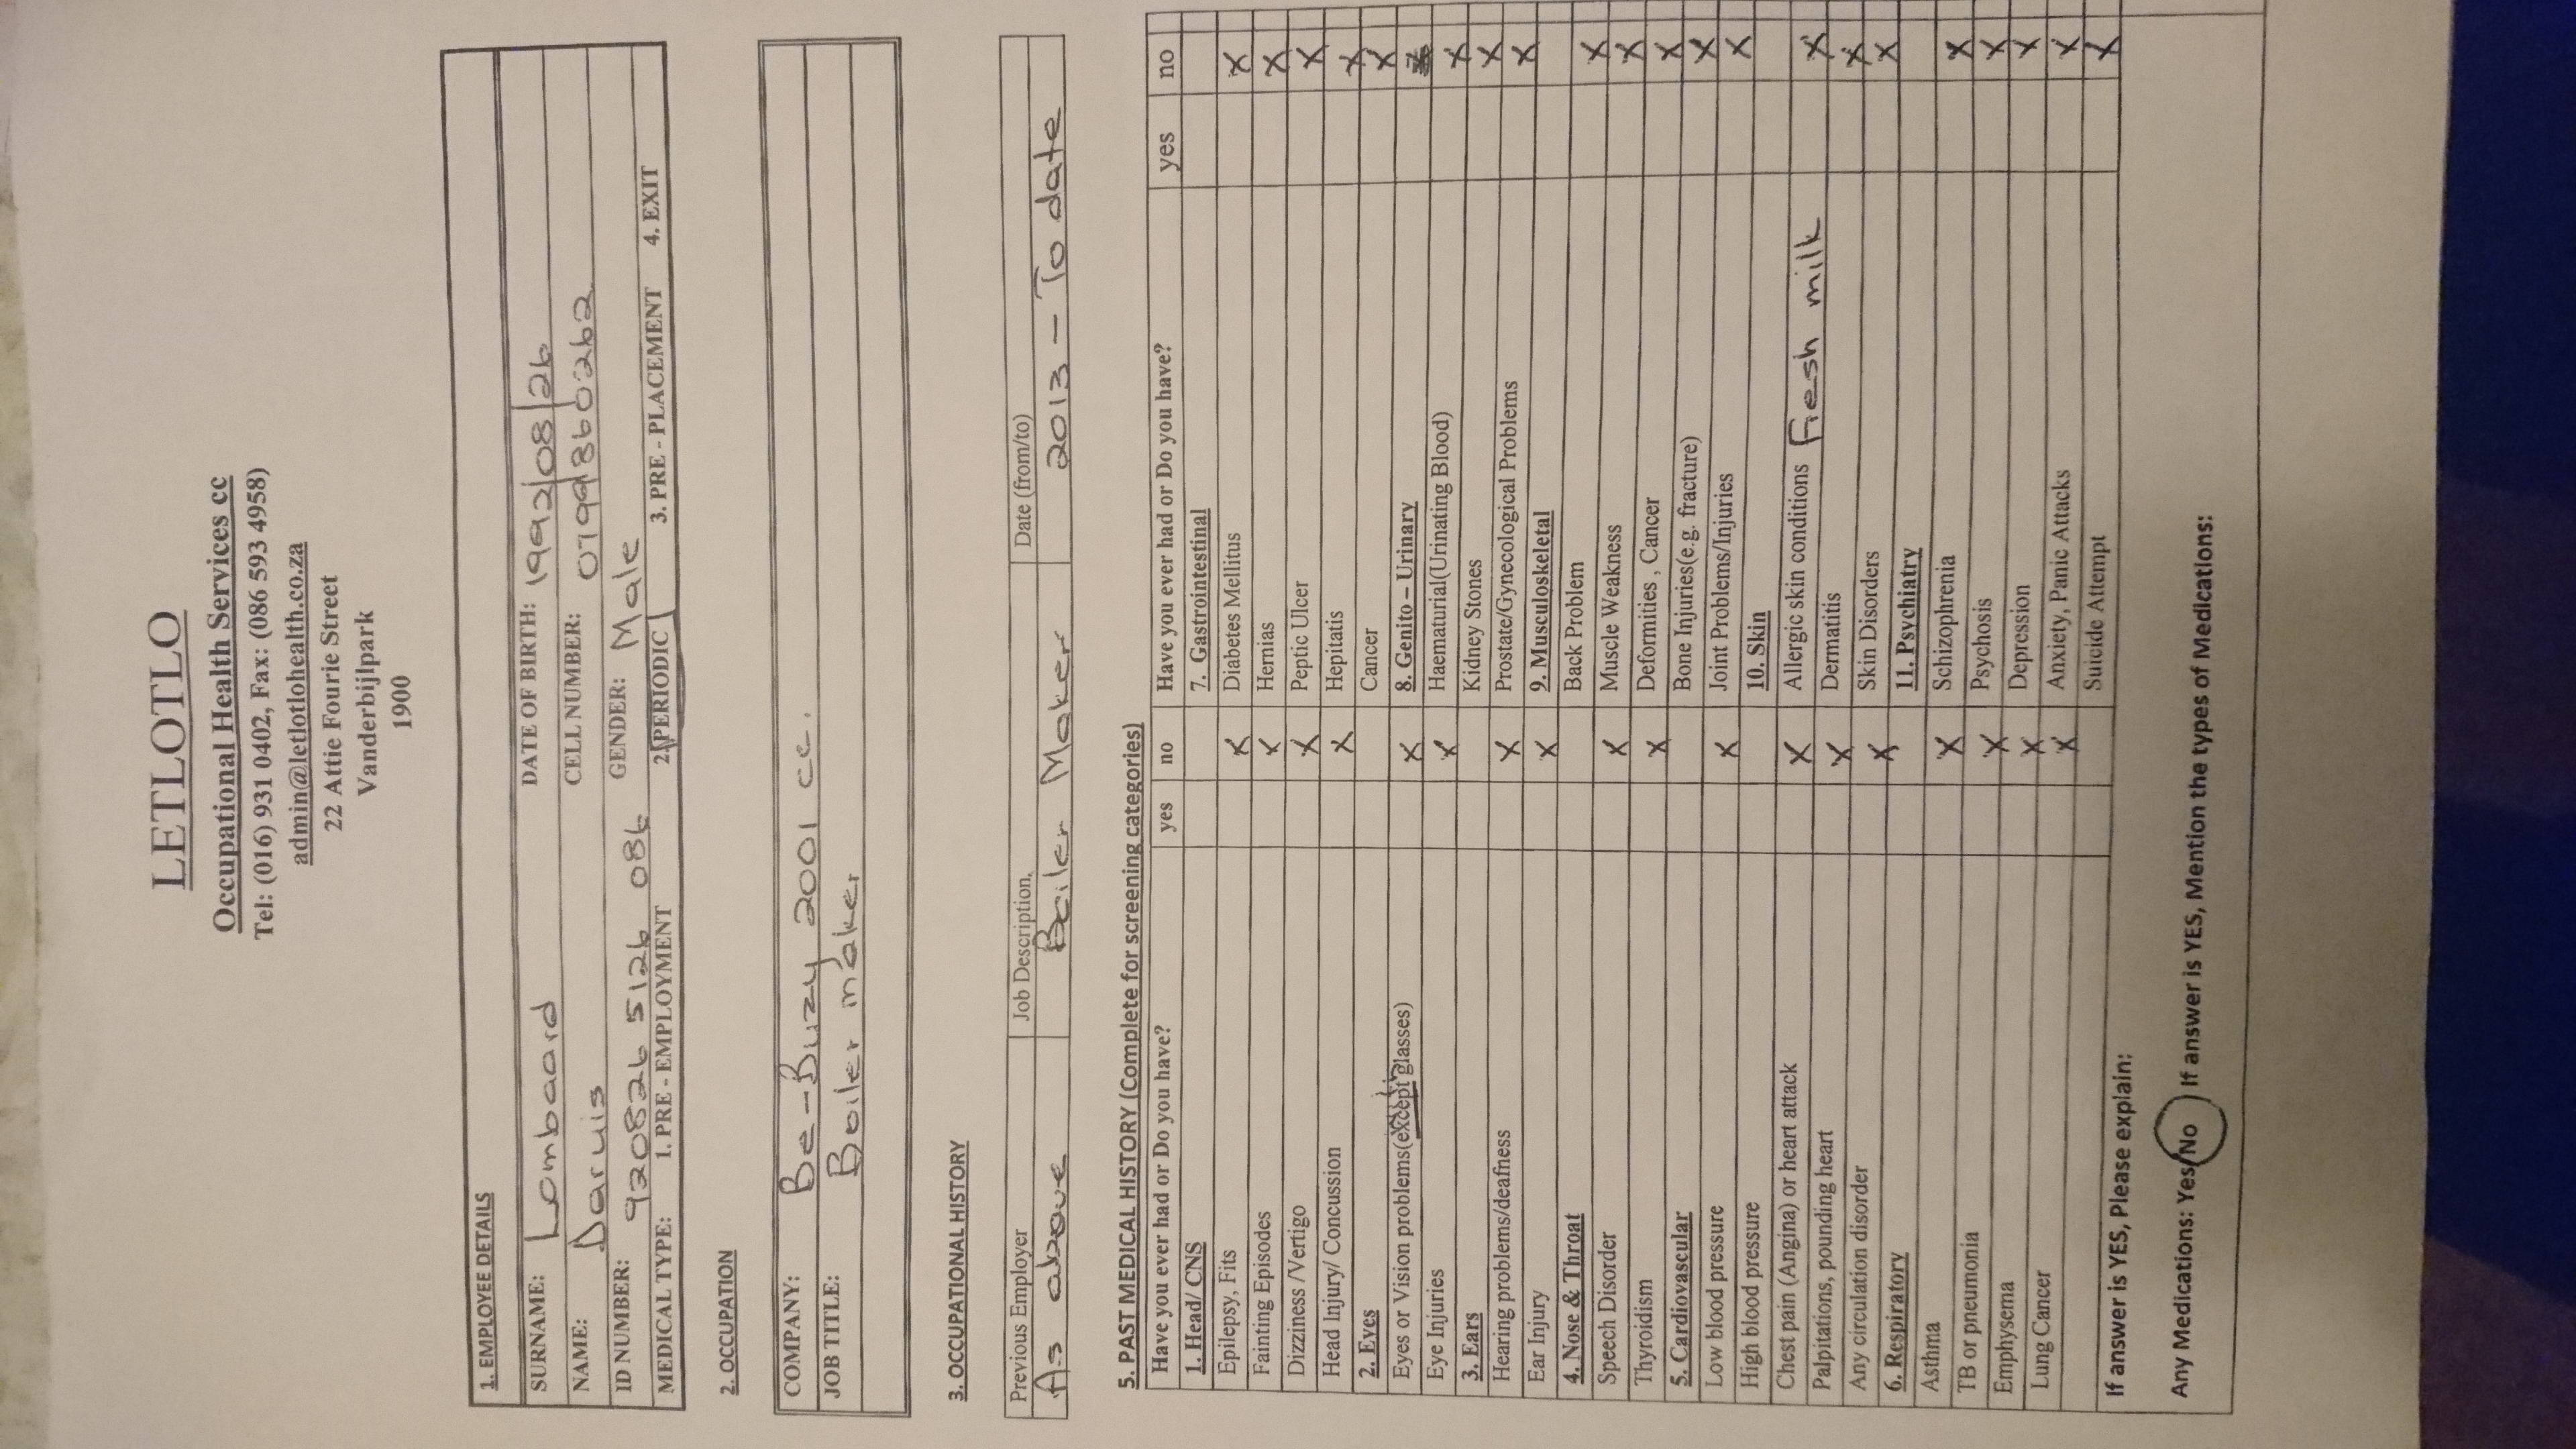 LETLOTLO
Occupational Health Services cc
Tel: (016) 931 0402, Fax: (086 593 4958)
admin@letlotlohealth.co.za
22 Attie Fourie Street
Vanderbijlpark
1900
1. EMPLOYEE DETAILS
SURNAME: Lombaard DATE OF BIRTH: 1992/08/26
NAME: Daruis CELL NUMBER: 0799860262
ID NUMBER: 920826 5126 086 GENDER: Male
MEDICAL TYPE: 1. PRE - EMPLOYMENT 2. PERIODIC 3. PRE - PLACEMENT 4. EXIT
2. OCCUPATION
COMPANY: Be-Buzy 2001 cc.
JOB TITLE: Boiler maker
3. OCCUPATIONAL HISTORY
Previous Employer Job Description. Date (from/to)
As above Boiler Maker 2013 - To date
5. PAST MEDICAL HISTORY (Complete for screening categories)
Have you ever had or Do you have? yes no Have you ever had or Do you have? yes no
1. Head/ CNS 7. Gastrointestinal
Epilepsy, Fits X Diabetes Mellitus X
Fainting Episodes X Hernias X
Dizziness /Vertigo X Peptic Ulcer X
Head Injury/ Concussion X Hepitatis X
2. Eyes Cancer X
Eyes or Vision problems(except glasses) X 8. Genito – Urinary
Eye Injuries X Haematurial(Urinating Blood) X
3. Ears Kidney Stones X
Hearing problems/deafness X Prostate/Gynecological Problems X
Ear Injury X 9. Musculoskeletal
4. Nose & Throat Back Problem X
Speech Disorder X Muscle Weakness X
Thyroidism X Deformities , Cancer X
5. Cardiovascular Bone Injuries(e.g. fracture) X
Low blood pressure X Joint Problems/Injuries X
High blood pressure 10. Skin
Chest pain (Angina) or heart attack X Allergic skin conditions Fresh milk X
Palpitations, pounding heart X Dermatitis X
Any circulation disorder X Skin Disorders X
6. Respiratory 11. Psychiatry
Asthma X Schizophrenia X
TB or pneumonia X Psychosis X
Emphysema X Depression X
Lung Cancer X Anxiety, Panic Attacks X
Suicide Attempt X
If answer is YES, Please explain:
Any Medications: Yes/No If answer is YES, Mention the types of Medications: